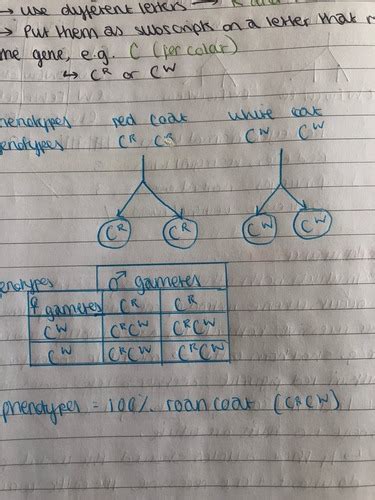 → use different letters →
→ Put them as subscripts on a letter that
me gene, e.g. C (for colar)
↳ Cᴿ or Cᵂ
henotypes red coat white coat
enotypes Cᴿ Cᴿ Cᵂ Cᵂ
Cᴿ Cᴿ Cᵂ Cᵂ
enotypes ♂ gametes
♀ gametes Cᴿ Cᴿ
Cᵂ CᴿCᵂ CᴿCᵂ
Cᵂ CᴿCᵂ CᴿCᵂ
phenotypes = 100% roan coat (CᴿCᵂ)